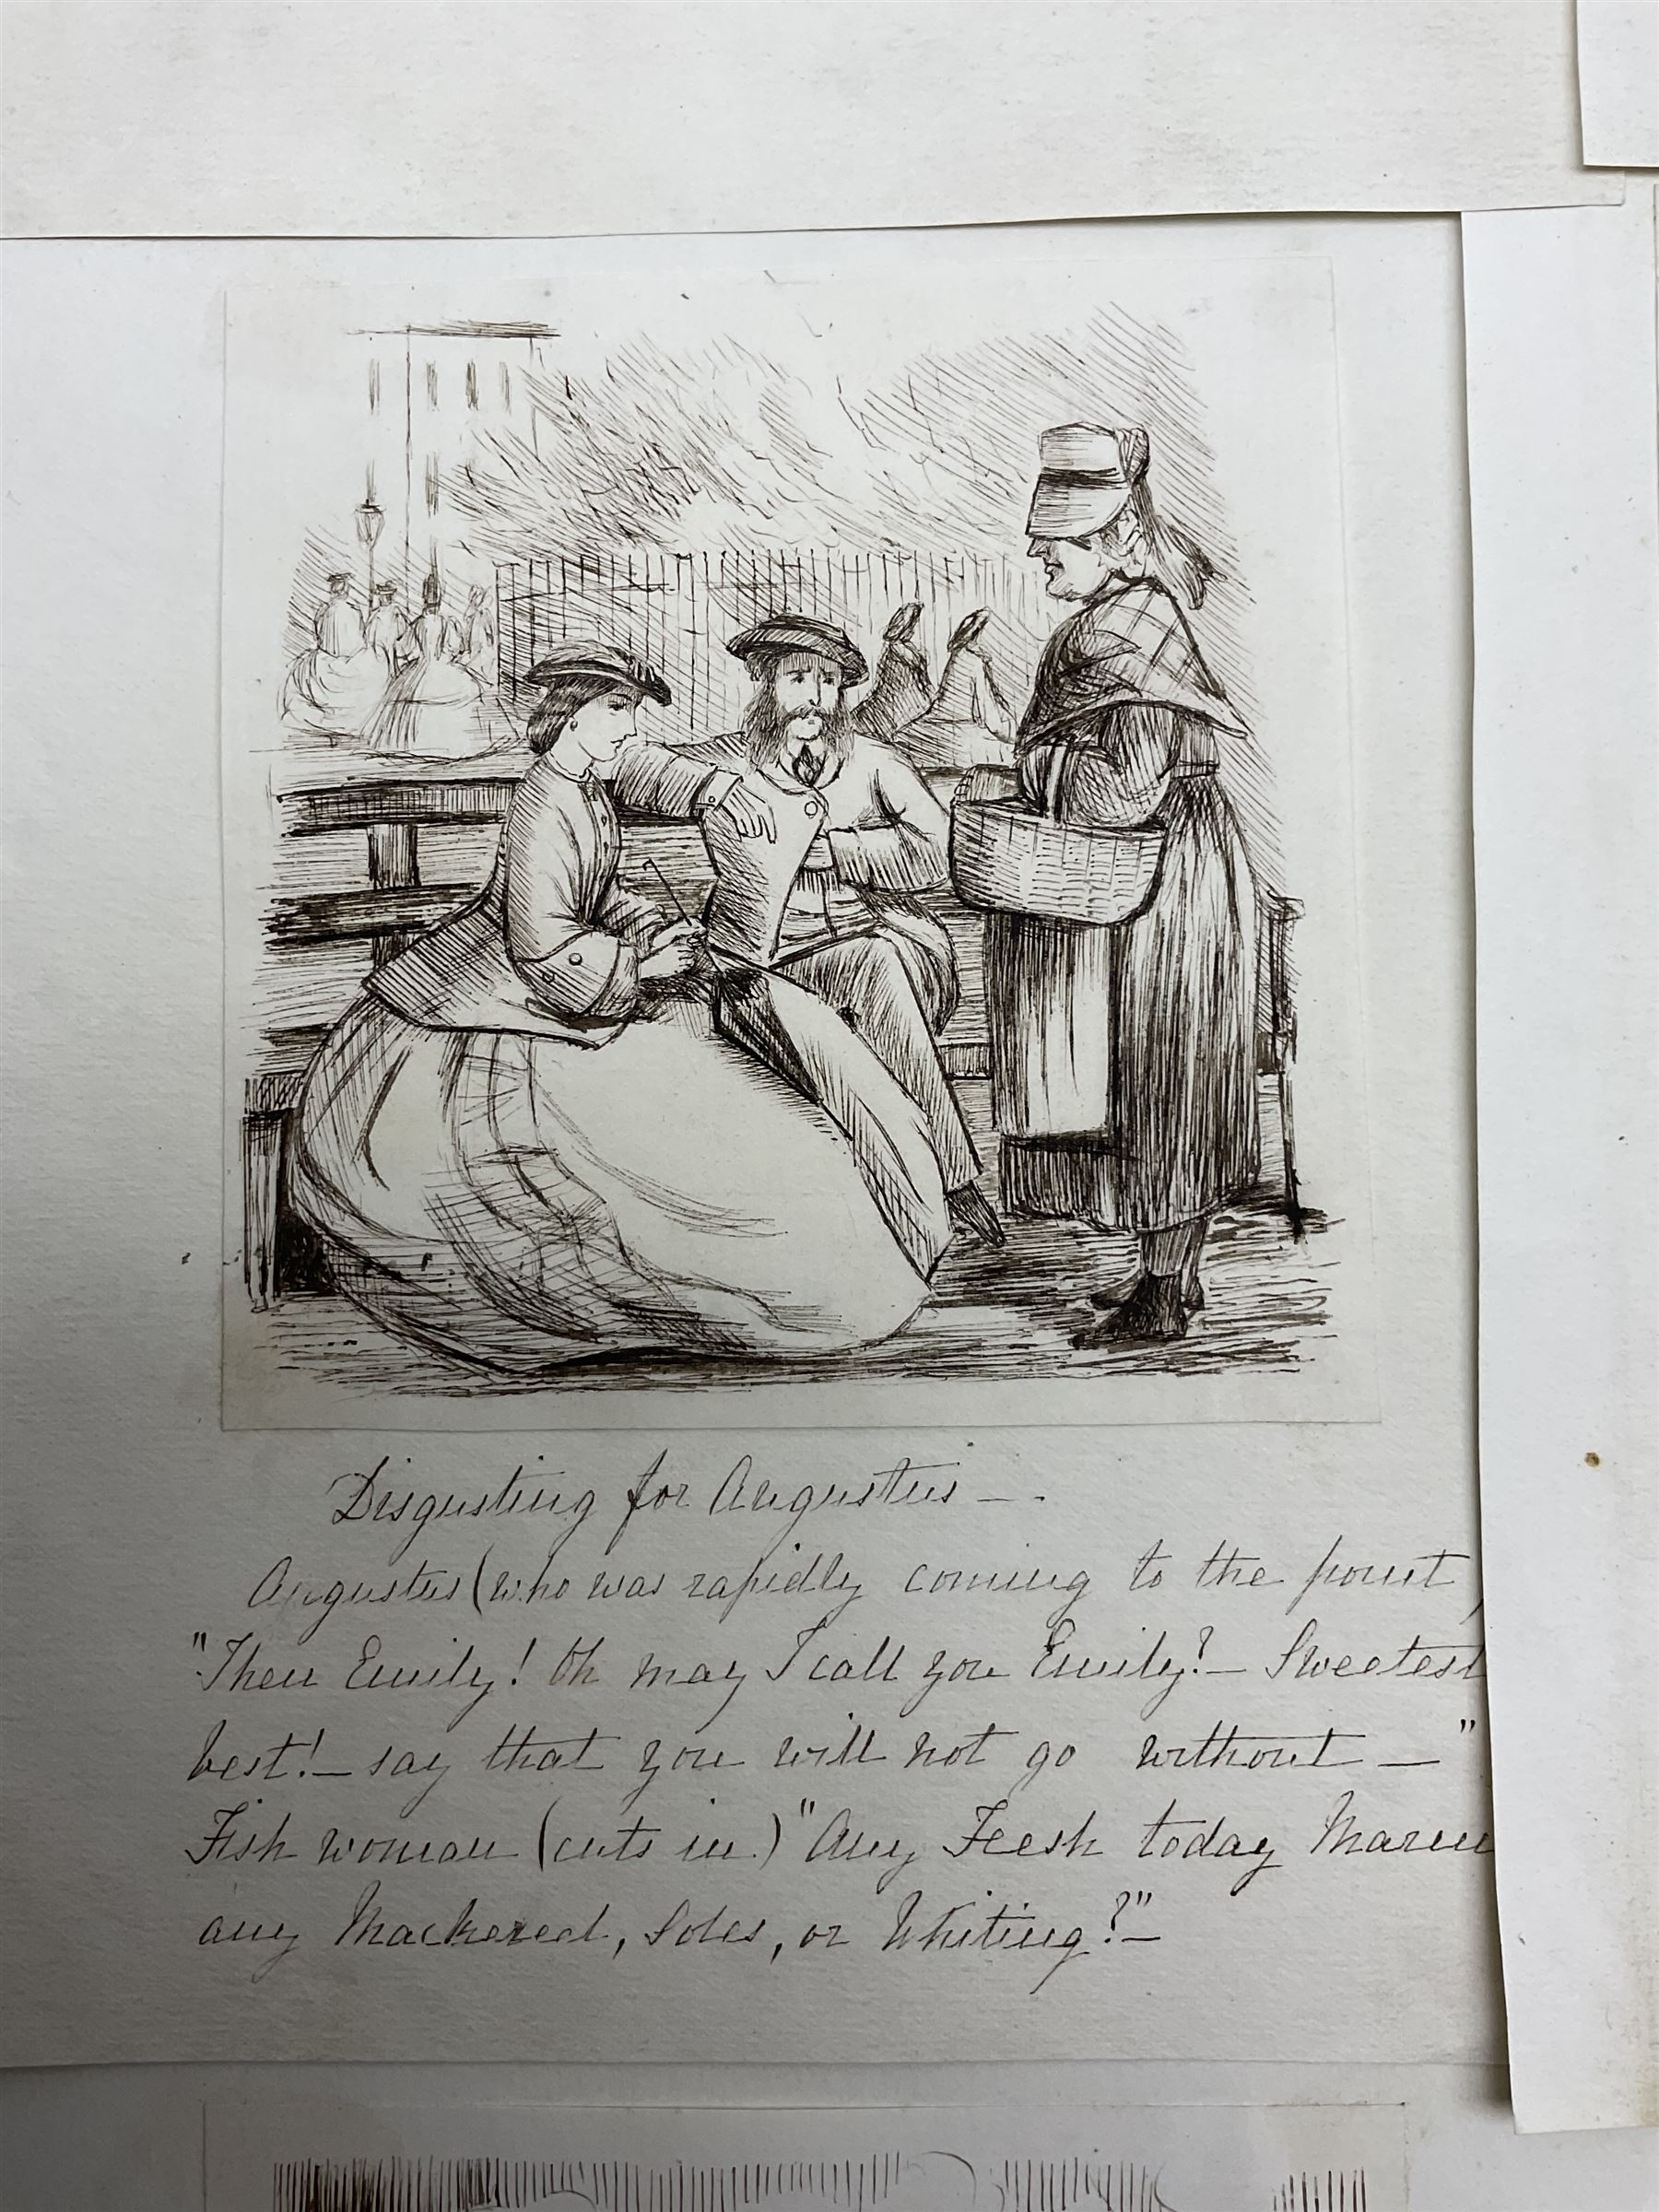 Disgusting for Augustus — -
Augustus (who was rapidly coming to the point)
"Then Emily! Oh may I call you Emily? — Sweetest
best! — say that you will not go without — "
Fish woman (cuts in.) "Any Feesh today Marm
any Mackerel, Soles, or Whiting?" —